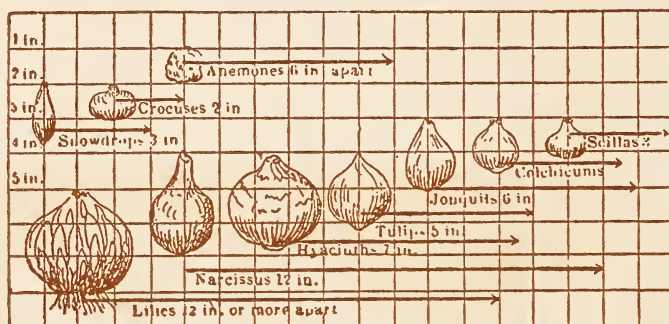 1 in.
Anemones 6 in. apart
2 in.
3 in.
Crocuses 2 in
Snowdrops 3 in
4 in.
Scillas 2
Colchicums
5 in.
Jonquils 6 in
Tulips 5 in.
Hyacinths 7 in.
Narcissus 12 in.
Lilies 12 in. or more apart